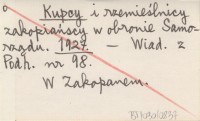 Kupcy i rzemieślnicy
zakopiańscy w obronie Samo-
rządu. 1927. — Wiad. z
Podh. nr 98.
W Zakopanem.